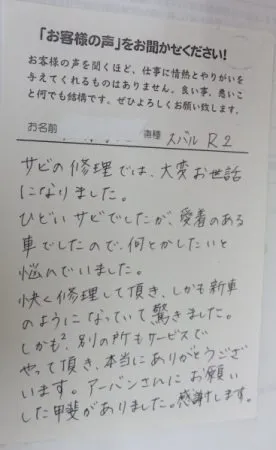 「お客様の声」をお聞かせください!
お客様の声を聞くほど、仕事に情熱とやりがいを
与えてくれるものはありません。良い事、悪いこ
と何でも結構です。ぜひよろしくお願い致します。
お名前 車種 スバル R2
サビの修理では、大変お世話
になりました。
ひどいサビでしたが、愛着のある
車でしたので、何とかしたいと
悩んでいました。
快く修理して頂き、しかも新車
のようになっていて驚きました。
しかも、別の所もサービスで
やって頂き、本当にありがとうござ
います。アーバンさんにお願い
した甲斐がありました。感謝します。